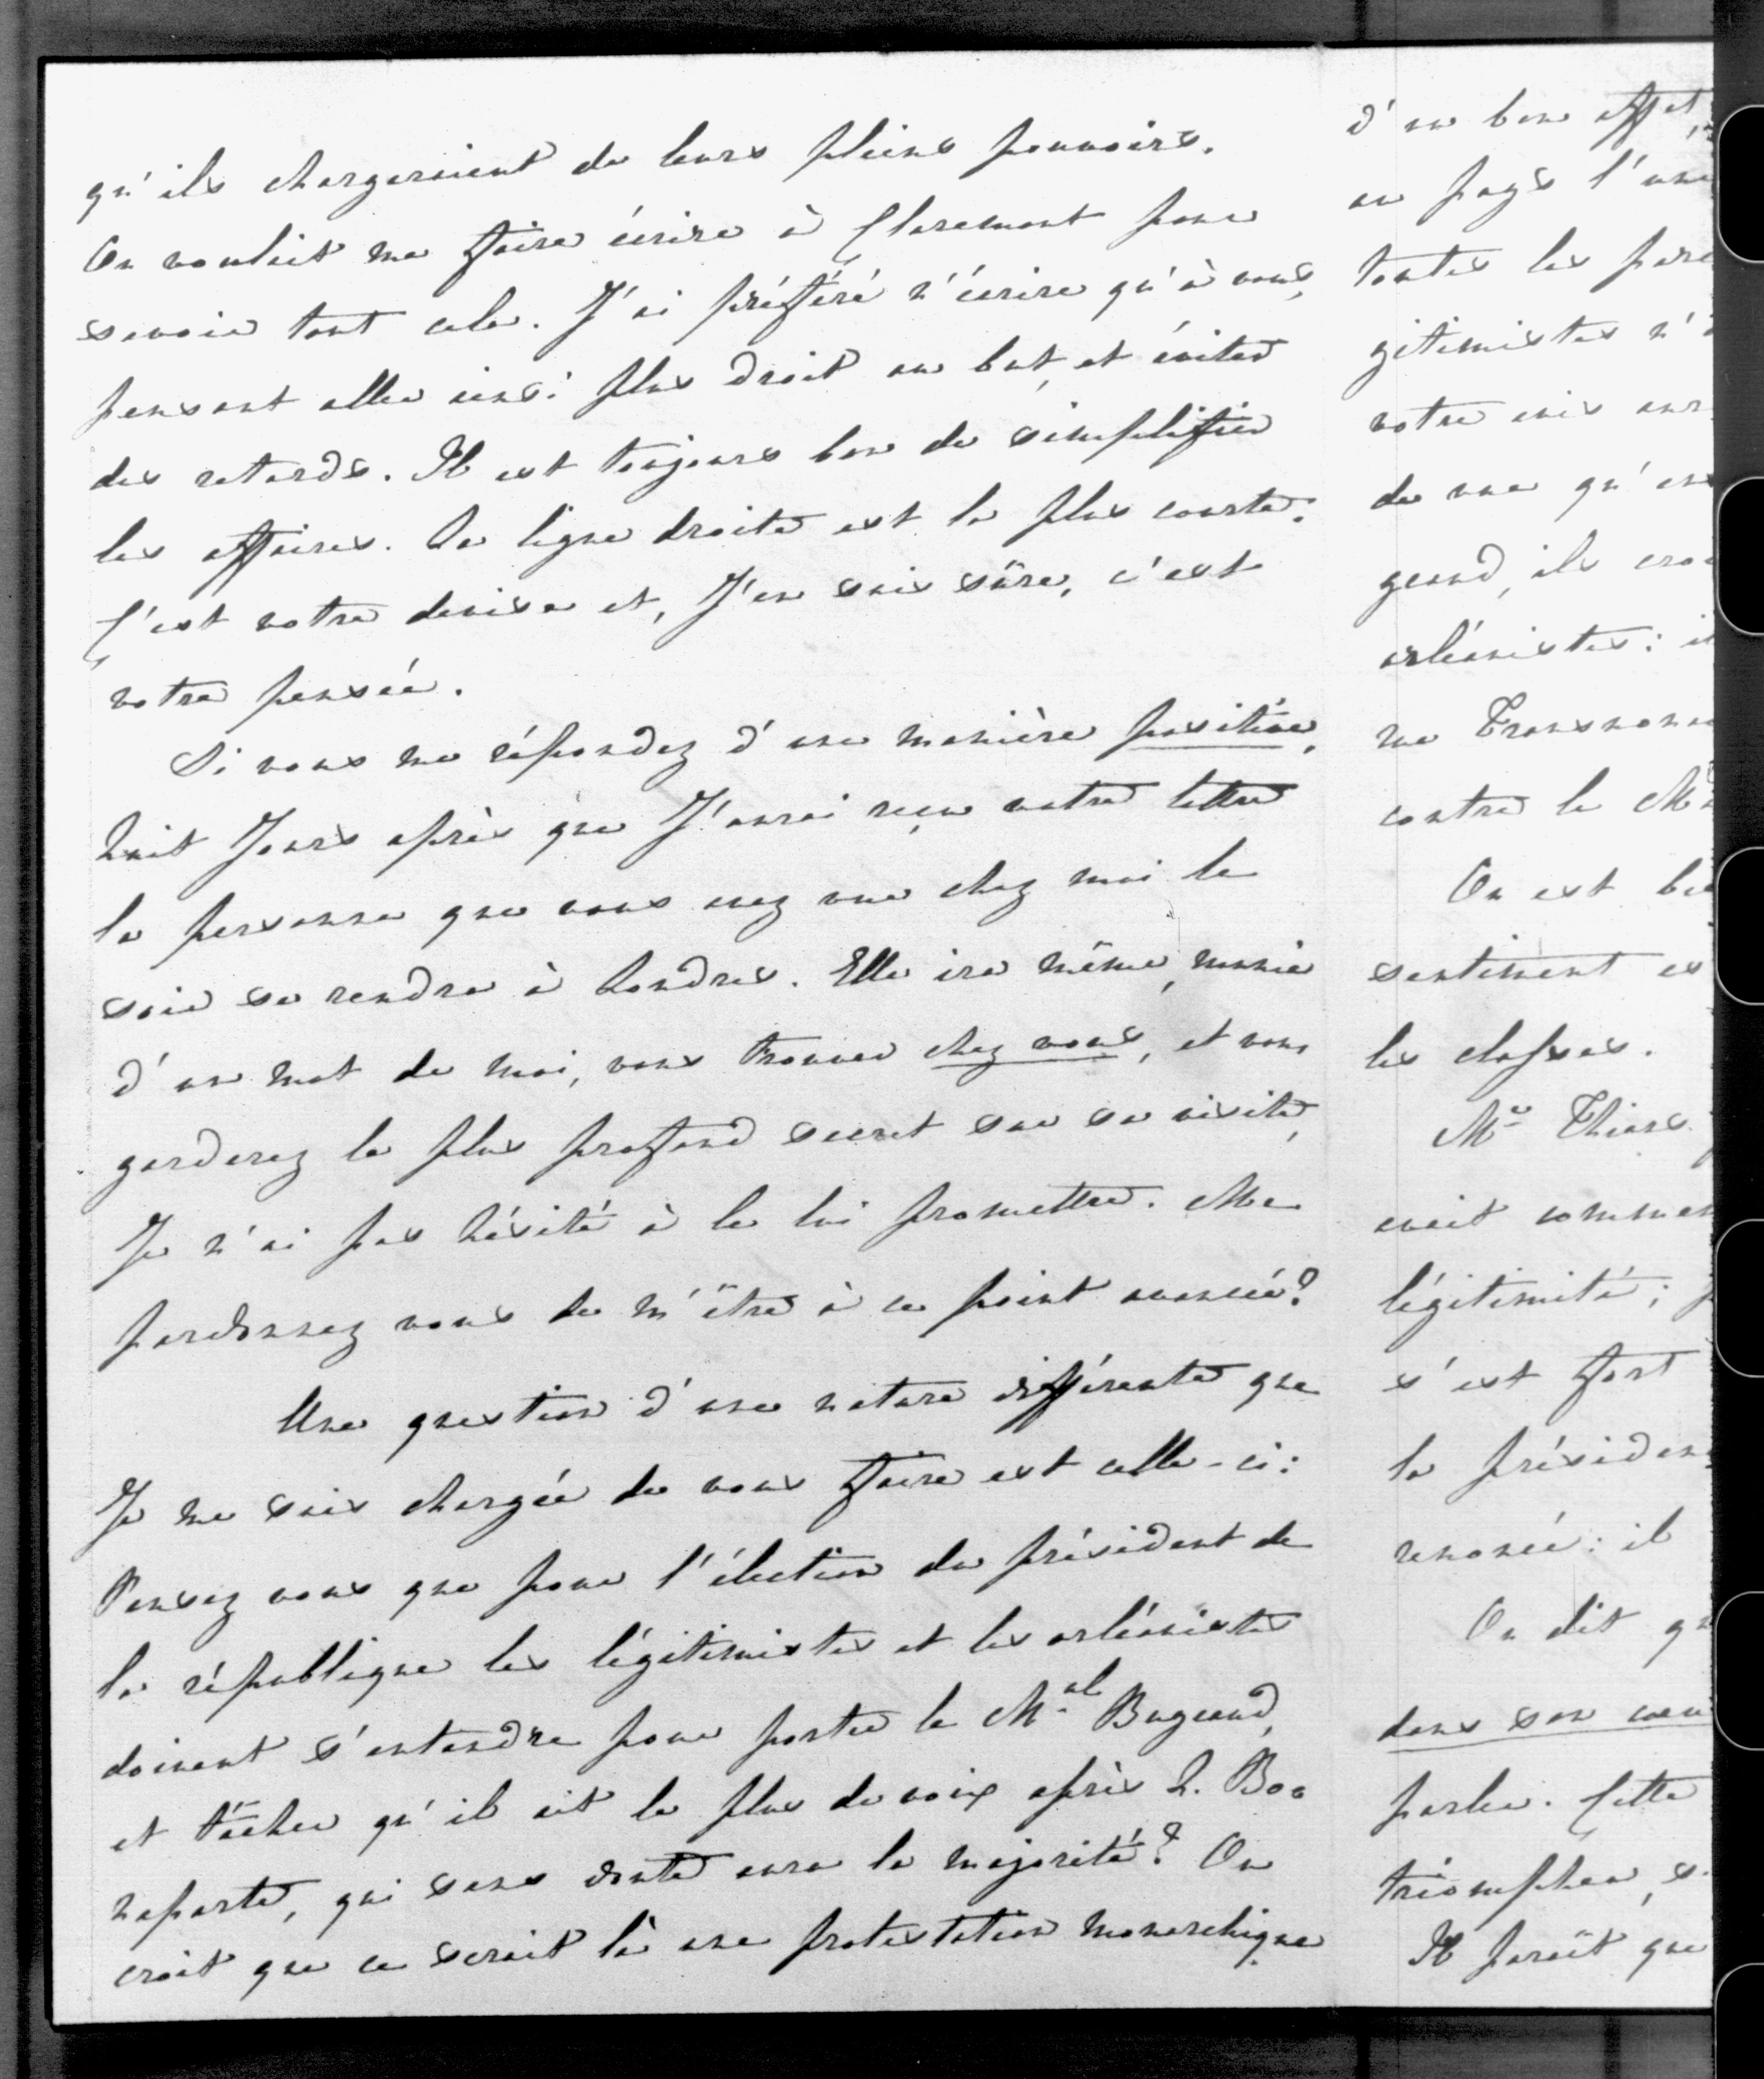 qu'ils chargeraient de leurs pleins pouvoirs.
On voulait me faire écrire à Claremont pour
savoir tout cela. J'ai préféré n'écrire qu'à vous,
pensant aller ainsi plus droit au but, et éviter
des retards. Il est toujours bon de simplifier
les affaires. La ligne droite est la plus courte:
C'est votre devise et, J'en suis sûre, c'est
votre pensée.
Si vous me répondez d'une manière positive,
huit Jours après que J'aurai reçu votre lettre
la personne que vous avez vue chez moi le
soir se rendra à Londres. Elle ira même, munie
d'un mot de moi, vous trouver chez vous, et vous
garderez le plus profond secret sur sa visite,
Je n'ai pas hésité à le lui promettre. Me
pardonnez vous de m'être à ce point avancée?
Une question d'une nature différente que
Je me suis chargée de vous faire est celle-ci:
Pensez vous que pour l'élection du président de
la république les légitimistes et les orléanistes
doivent s'entendre pour porter le Mal Bugeaud,
et tâcher qu'il ait le plus de voix après L. Bo=
naparte, qui sans doute aura la majorité? On
croit que ce serait là une protestation monarchique
d'un bon effet,
au pays l'un
toutes les par
gitimistes n'
votre avis sur
de vue qu'en
geaud, ils cro
orléanistes: i
me Transnon
contre le M
On est bi
sentiment es
les classes.
Mr Thiers
avait commen
légitimité;
s'est fort
la présiden
renoncé: il
On dit qu
dans son coeu
parler. Cette
triompher, s
Il paraît que